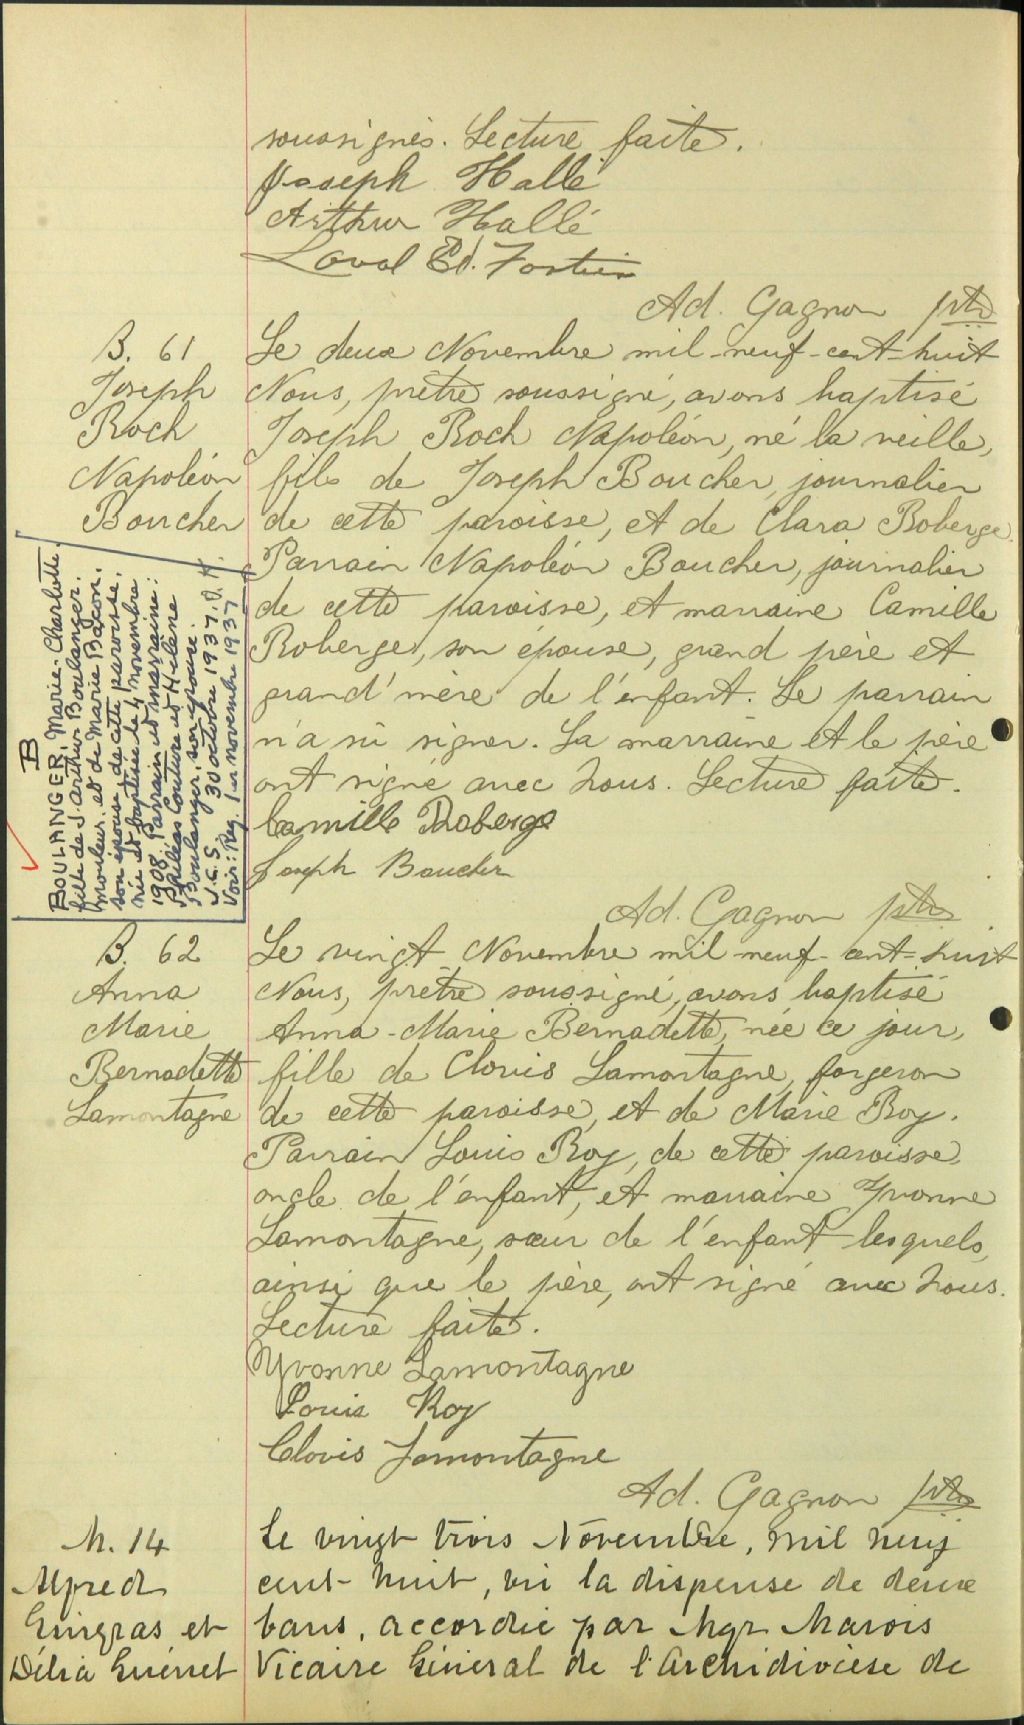 soussignés. Lecture faite.
Joseph Hallé
Arthur Hallé
Laval Ed. Fortier
Ad. Gagnon ptre
B. 61
Joseph
Roch
Napoléon
Boucher
Le deux Novembre mil-neuf-cent-huit
Nous, prêtre soussigné, avons baptisé
Joseph Roch Napoléon, né la veille,
fils de Joseph Boucher, journalier
de cette paroisse, et de Clara Roberge.
Parrain Napoléon Boucher, journalier
de cette paroisse, et marraine Camille
Roberge, son épouse, grand père et
grand'mère de l'enfant. Le parrain
n'a su signer. La marraine et le père
ont signé avec nous. Lecture faite.
Camille Roberge
Joseph Boucher
Ad. Gagnon ptre
B
BOULANGER, Marie-Charlotte.
fille de J. Arthur Boulanger.
mouleur. et de Marie Bacon.
son épouse. de cette paroisse.
née et baptisée le 4 novembre
1908. Parrain et marraine:
Couture et Hélène
Boulanger, son épouse.
J.C.S. 30 octobre 1937.
Voir: Reg. 1er novembre 1937
B. 62
Anna
Marie
Bernadette
Lamontagne
Le vingt Novembre mil-neuf-cent-huit
Nous, prêtre soussigné, avons baptisé
Anna-Marie Bernadette, née ce jour,
fille de Clovis Lamontagne, forgeron
de cette paroisse, et de Marie Roy.
Parrain Louis Roy, de cette paroisse,
oncle de l'enfant, et marraine Yvonne
Lamontagne, sœur de l'enfant lesquels,
ainsi que le père, ont signé avec nous.
Lecture faite.
Yvonne Lamontagne
Louis Roy
Clovis Lamontagne
Ad. Gagnon ptre
M. 14
Alfred
Gingras et
Délia Guénet
Le vingt trois Novembre, mil neuf
cent-huit, vu la dispense de deux
bans, accordée par Mgr. Marois
Vicaire Général de l'Archidiocèse de